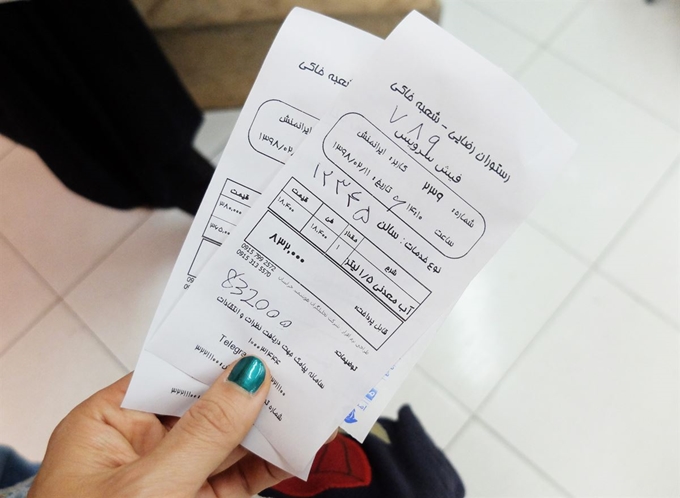 رستوران رضایی - شعبه خاکی
۷۸۹
فیش سرویس
شماره: ۲۳۹ کاربر: ایرانمنش
ساعت ۱۴:۱۰ تاریخ: ۱۳۹۸/۰۲/۱۱
نوع خدمات: سالن ۱۲۳۴۵
شرح مقدار فی قیمت
آب معدنی ۱/۵ لیتر ۱ ۱۸,۴۰۰ ۱۸,۴۰۰
قابل پرداخت: ۸۳۲,۰۰۰
0915 799 2572
0915 313 5570
توضیحات: 832000
سامانه پیامک جهت دریافت نظرات و انتقادات
Telegra
شماره
شعبه خاکی
ایرانمنش
۱۳۹۸/۰۲/۱۱
قیمت
۳۸۰,۰۰۰